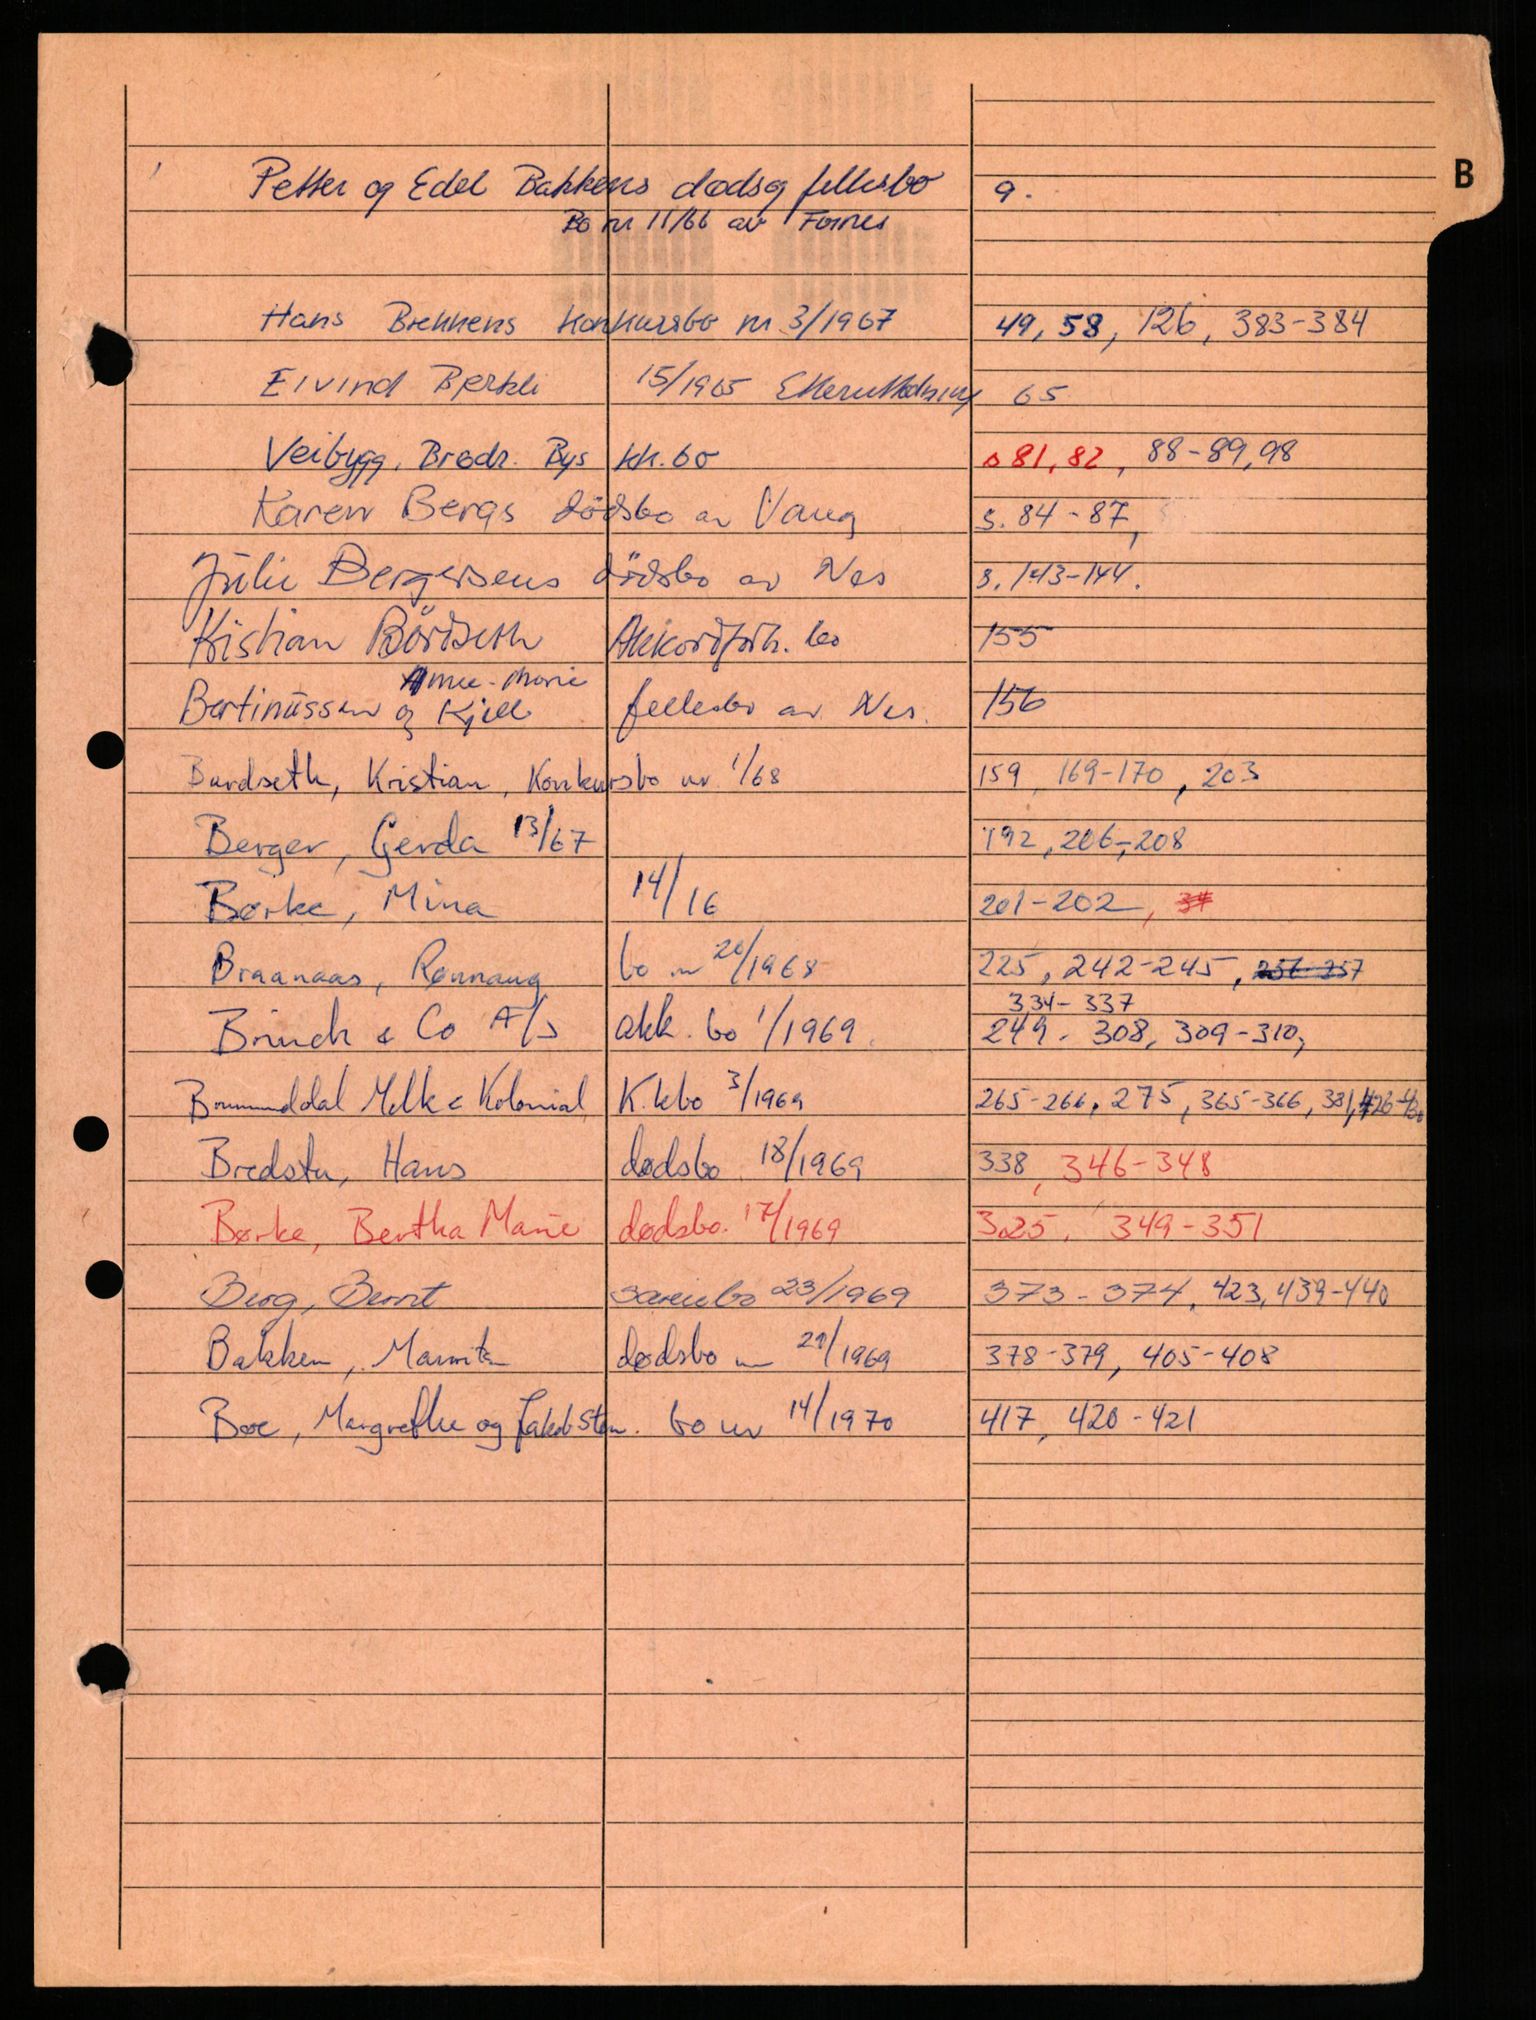 B
Petter og Edel Bakkens dødsog fellesbo 9.
Bo nr 11/66 av Furnes
Hans Brekkens Konkursbo nr 3/1967 49, 58, 126, 383-384
Eivind Bjerkli 15/1965 Etterutlodning 65
Veibygg, Brødr. Bys kk.bo s 81, 82, 88-89, 98
Karen Bergs dödsbo av Vang s. 84-87,
Julie Bergersens dödsbo av Nes s. 143-144.
Kristian Bördseth Akkordforh. bo 155
Anne-Marie
Bertinussen og Kjell fellesbo av Nes. 156
Burdseth, Kristian, Konkursbo nr. 1/68 159, 169-170, 203
Berger, Gerda 13/67 192, 206-208
Børke, Mina 14/16 201-202,
Braanaas, Rønnaug bo nr 20/1968 225, 242-245, 256-257
334-337
Bruuck & Co A/S akk. bo 1/1969. 249. 308, 309-310,
Brummunddal Melk & Kolonial, K.kbo 3/1969 265-266, 275, 365-366, 381,
Bredstu, Hans dødsbo 18/1969 338, 346-348
Børke, Bertha Marie dødsbo. 17/1969 325, 349-351
Berg, Bernt 23/1969 373-374, 423, 439-440
Bakken, dødsbo nr 21/1969 378-379, 405-408
Boe, Margrethe og Jakob Sten. bo nr 14/1970 417, 420-421